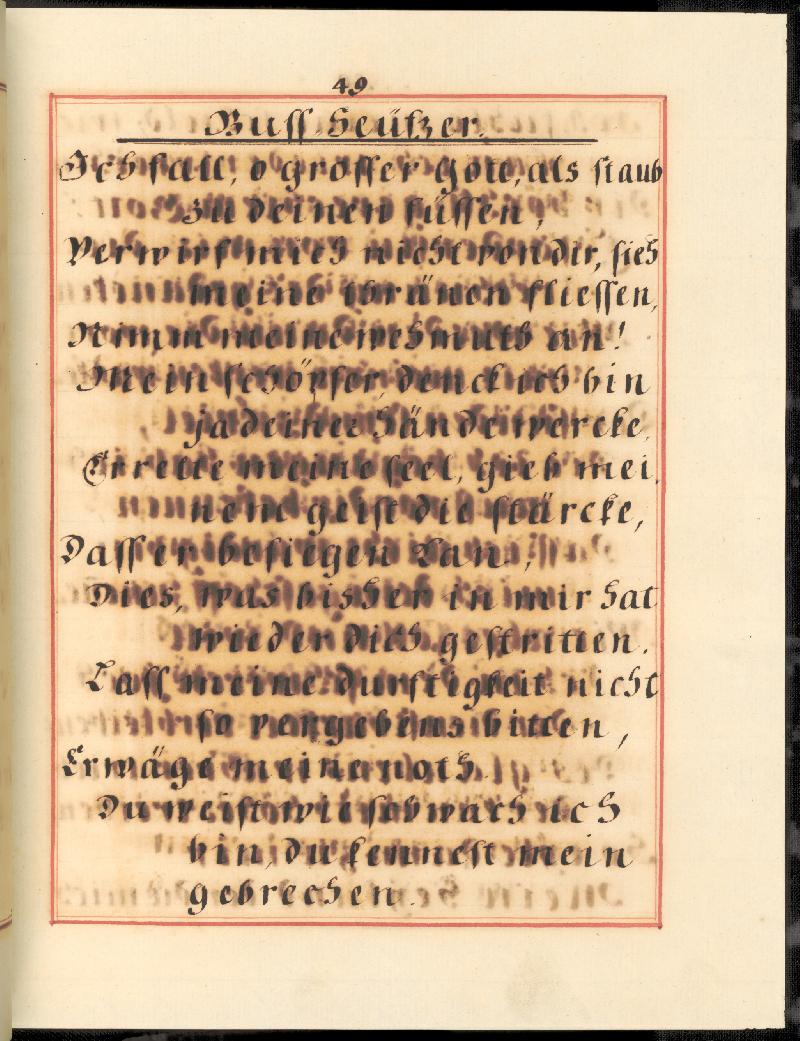 49
Buss Seüfzer.
Ich fall, o grosser Gott, als staub
Zu deinen füssen,
Verwirf mich nicht von dir, sieh
meine thränen fliessen,
Nimm meine wehmuth an!
Mein schöpfer, denck ich bin
ja deiner Hände wercke,
Errette meine seel, gieb mei,
nem geist die stärcke,
Dass er besiegen kan,
Dies, was bisher in mir hat
wieder dich gestritten.
Lass meine durftigkeit nicht
so vergebens bitten,
Erwäge meine noth.
Du weist wie schwach ich
bin, du kennest mein
gebrechen.